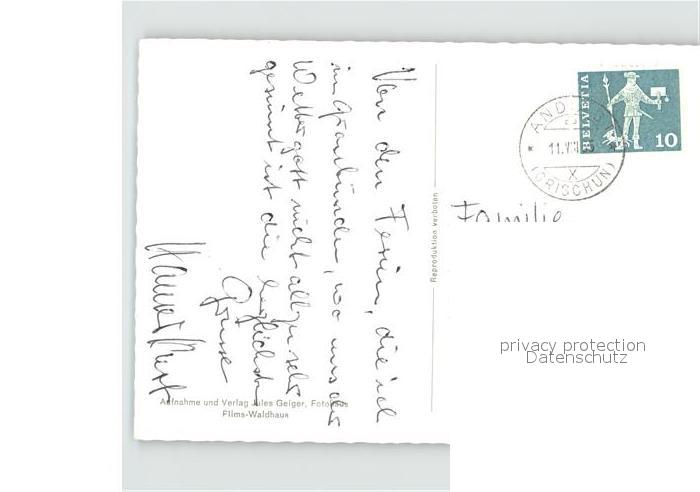 Von den Ferien, die ich
in Graubünden, wo uns der
Wettergott nicht allzu sehr
gesinnt ist die herzlichsten
Grüsse
Aufnahme und Verlag Jules Geiger, Fotohaus
Flims-Waldhaus
Reproduktion verboten
HELVETIA
10
AND
11.VIII
X
(GRISCHUN)
Familie
privacy protection
Datenschutz